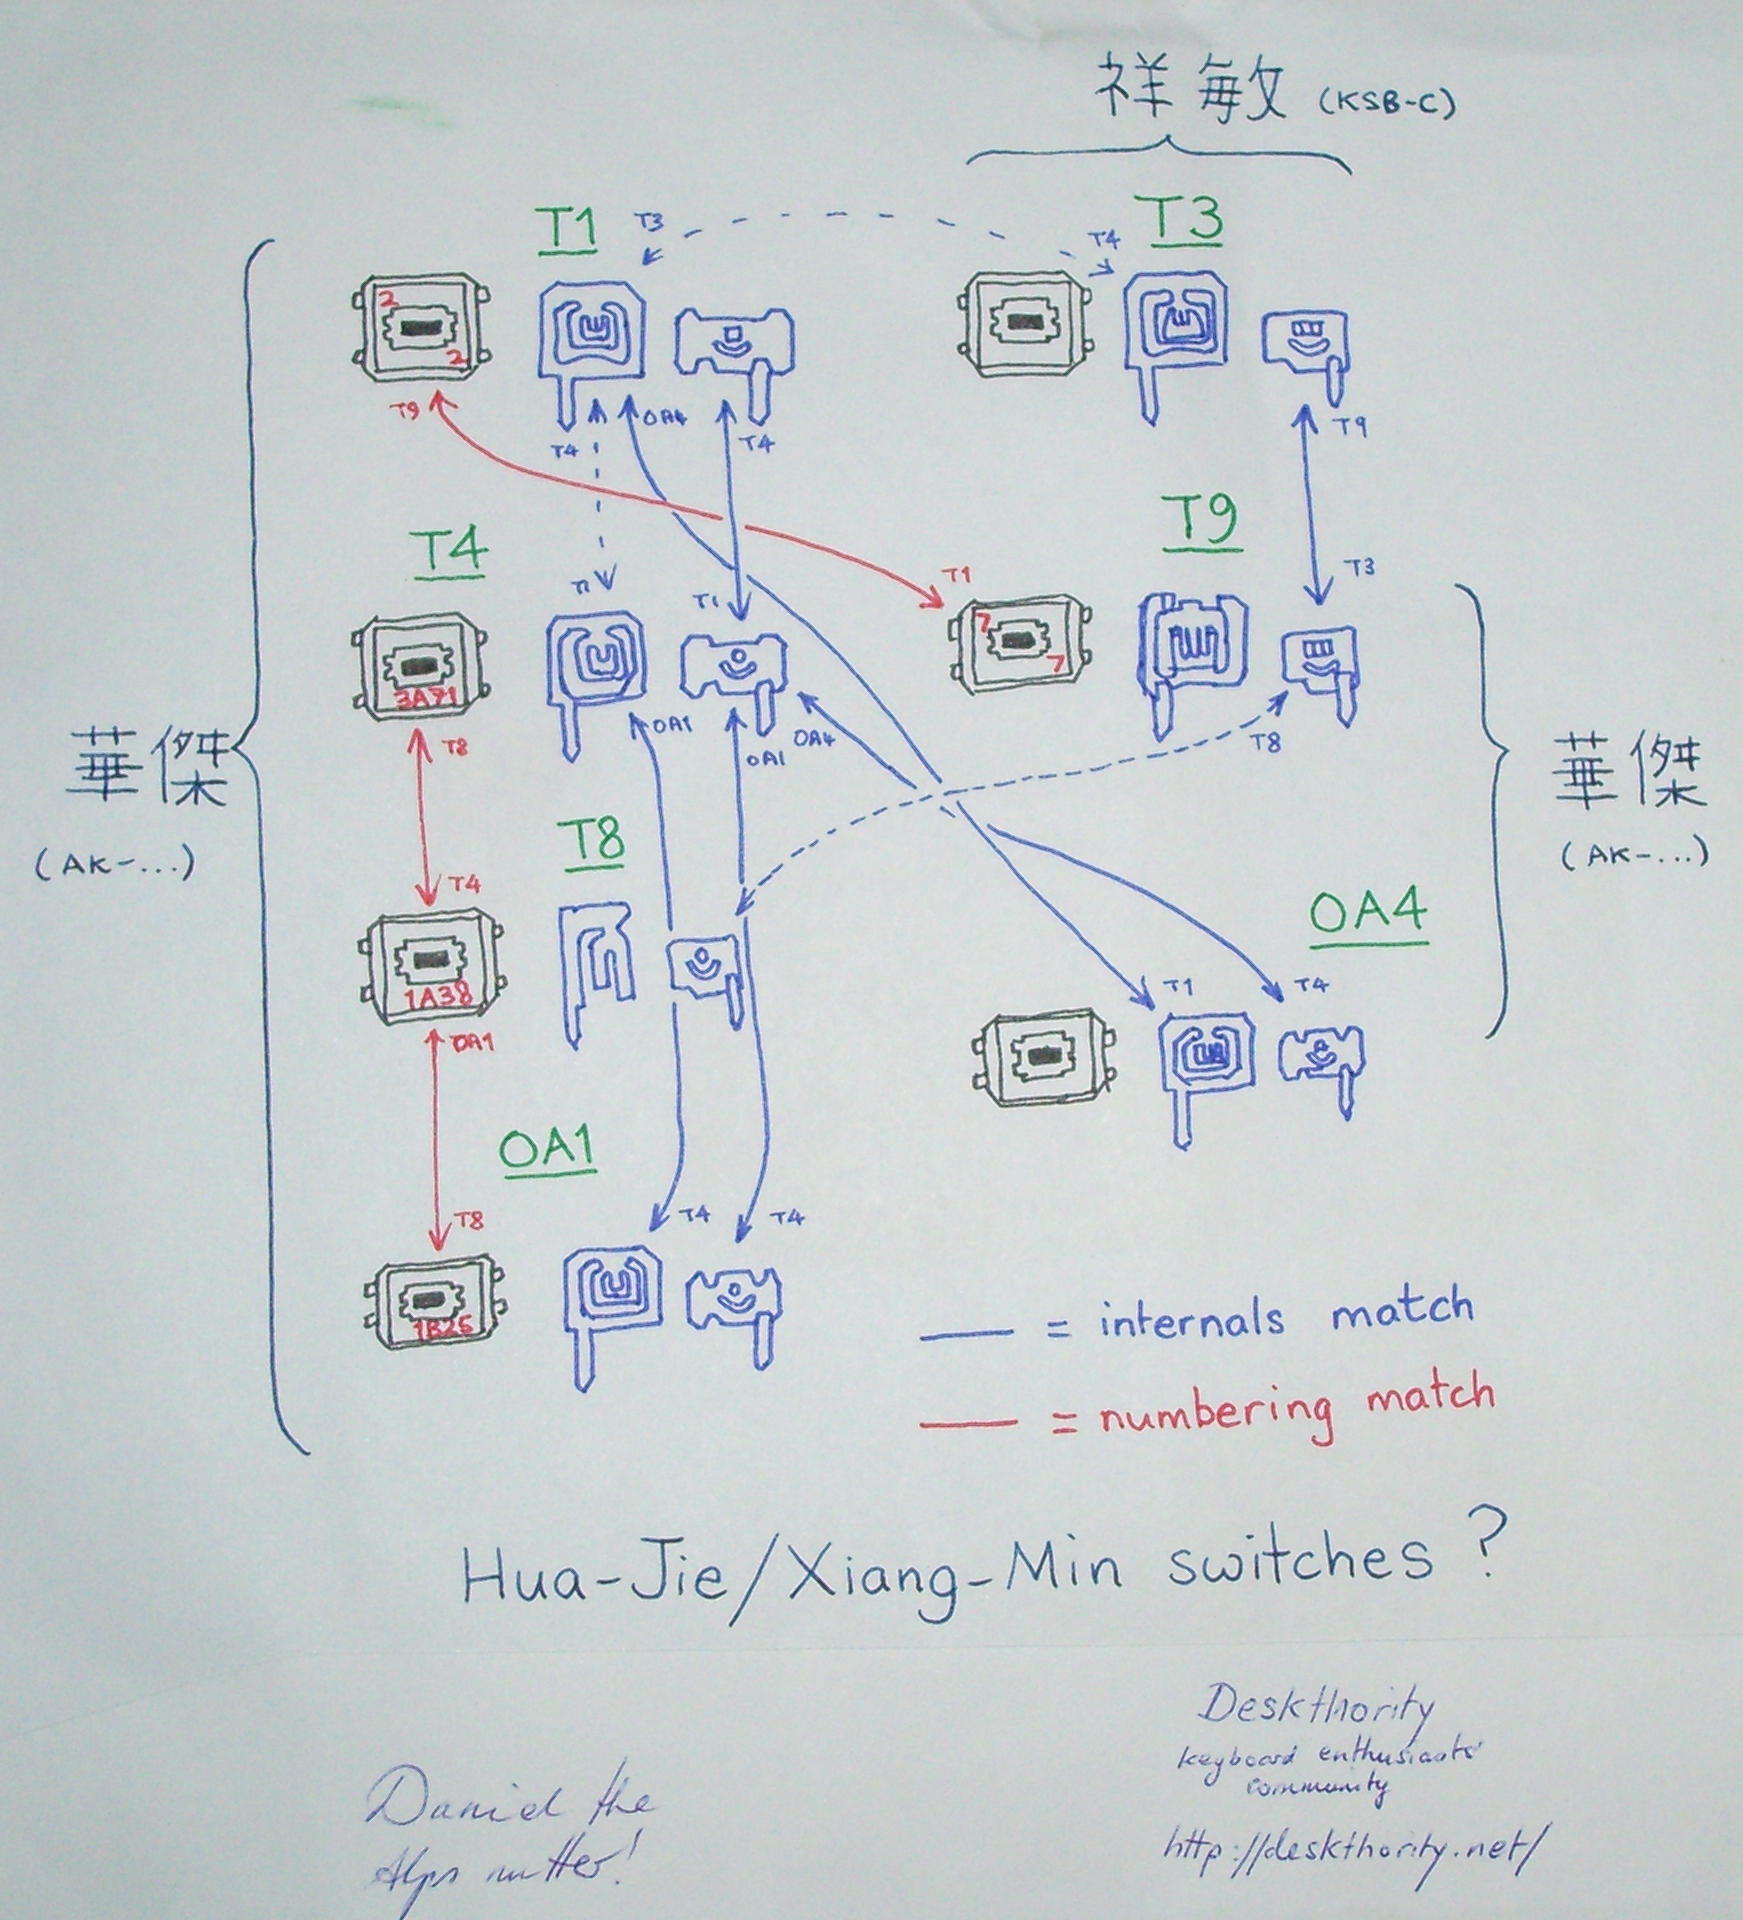 祥敏 (KSB-C)
T1
T3
T3
T4
2
2
T9
T4
OA4
T4
T9
T9
T4
T1
T1
T1
T3
7
7
3A71
華傑
(AK-...)
T8
OA1
OA1
OA4
T8
華傑
(AK-...)
T8
T4
OA4
1A38
OA1
T1
T4
OA1
T8
T4
T4
1B26
= internals match
= numbering match
Hua-Jie/Xiang-Min switches?
Deskthority
keyboard enthusiasts'
community
Daniel the
Alps nutter!
http://deskthority.net/